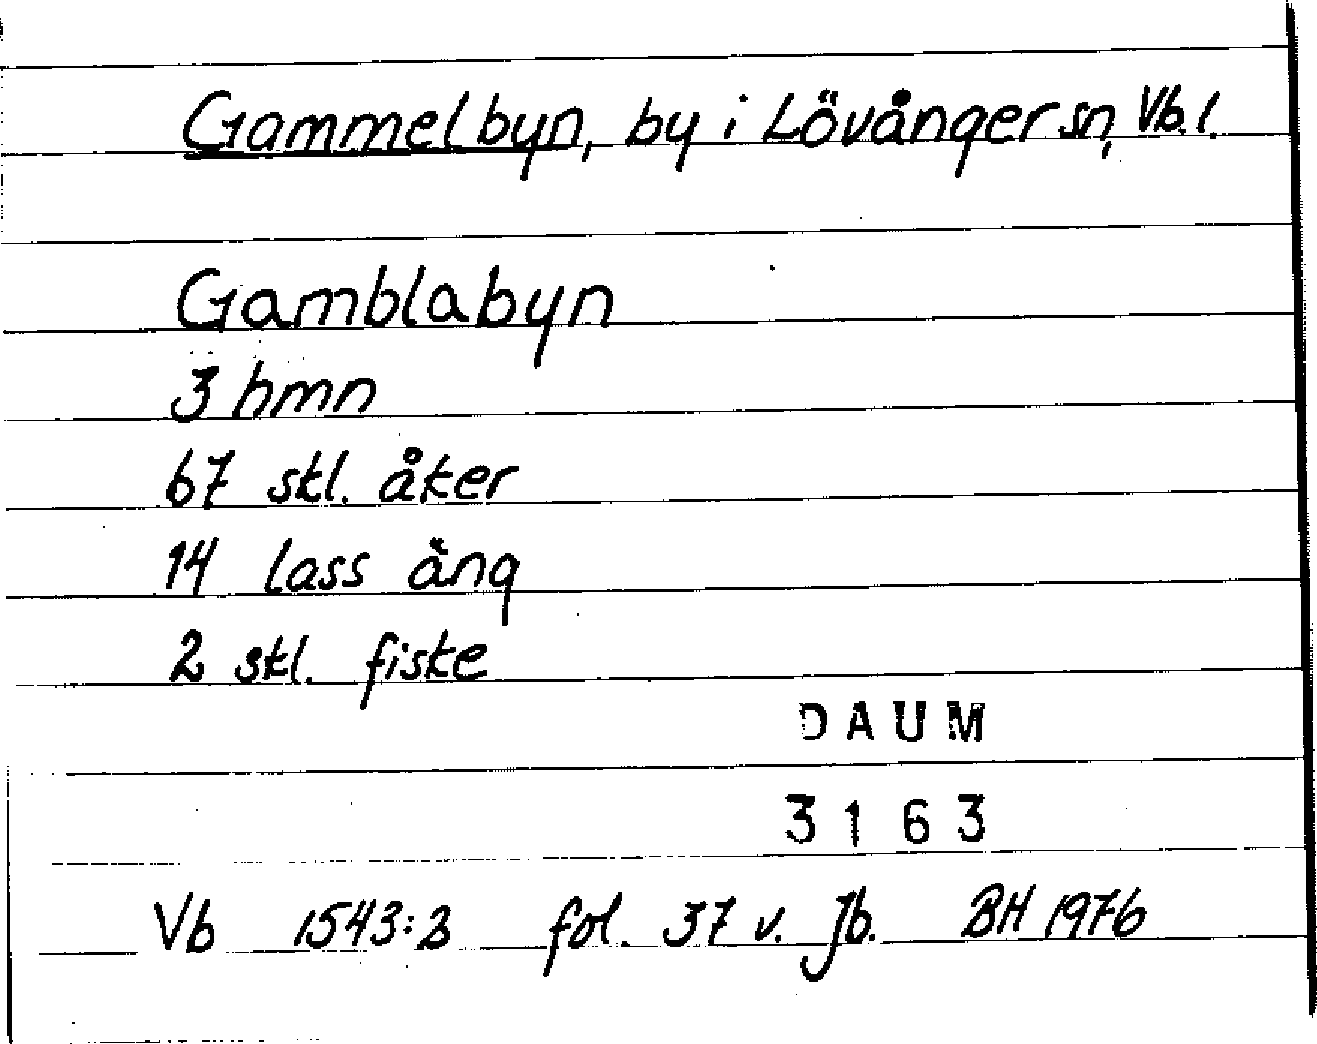 Gammelbyn, by i Lövånger sn, Vb.l.
Gamblabyn
3 hmn
67 skl. åker
14 lass äng
2 skl. fiske
DAUM
3163
Vb 1543:3 fol. 37 v. Jb. BH 1976